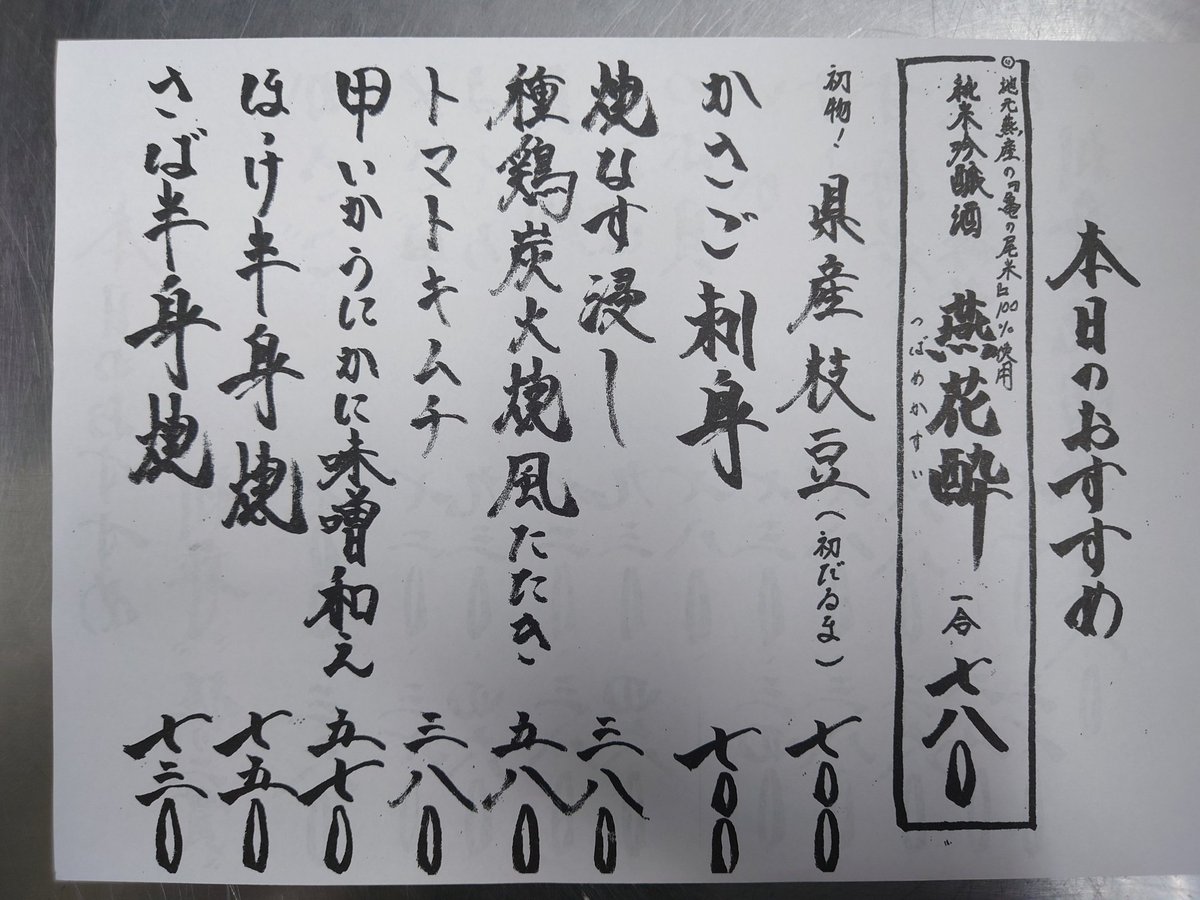 本日のおすすめ
地元燕産の「亀の尾米」100%使用
純米吟醸酒 燕花酔 一合 七八0
つばめかすい
初物! 県産枝豆(初だるま) 七00
かさご刺身 七00
焼なす浸し 三八0
種鶏炭火焼風たたき 五八0
トマトキムチ 三八0
甲いかうにかに味噌和え 五七0
ほっけ半身焼 七五0
さば半身焼 七三0